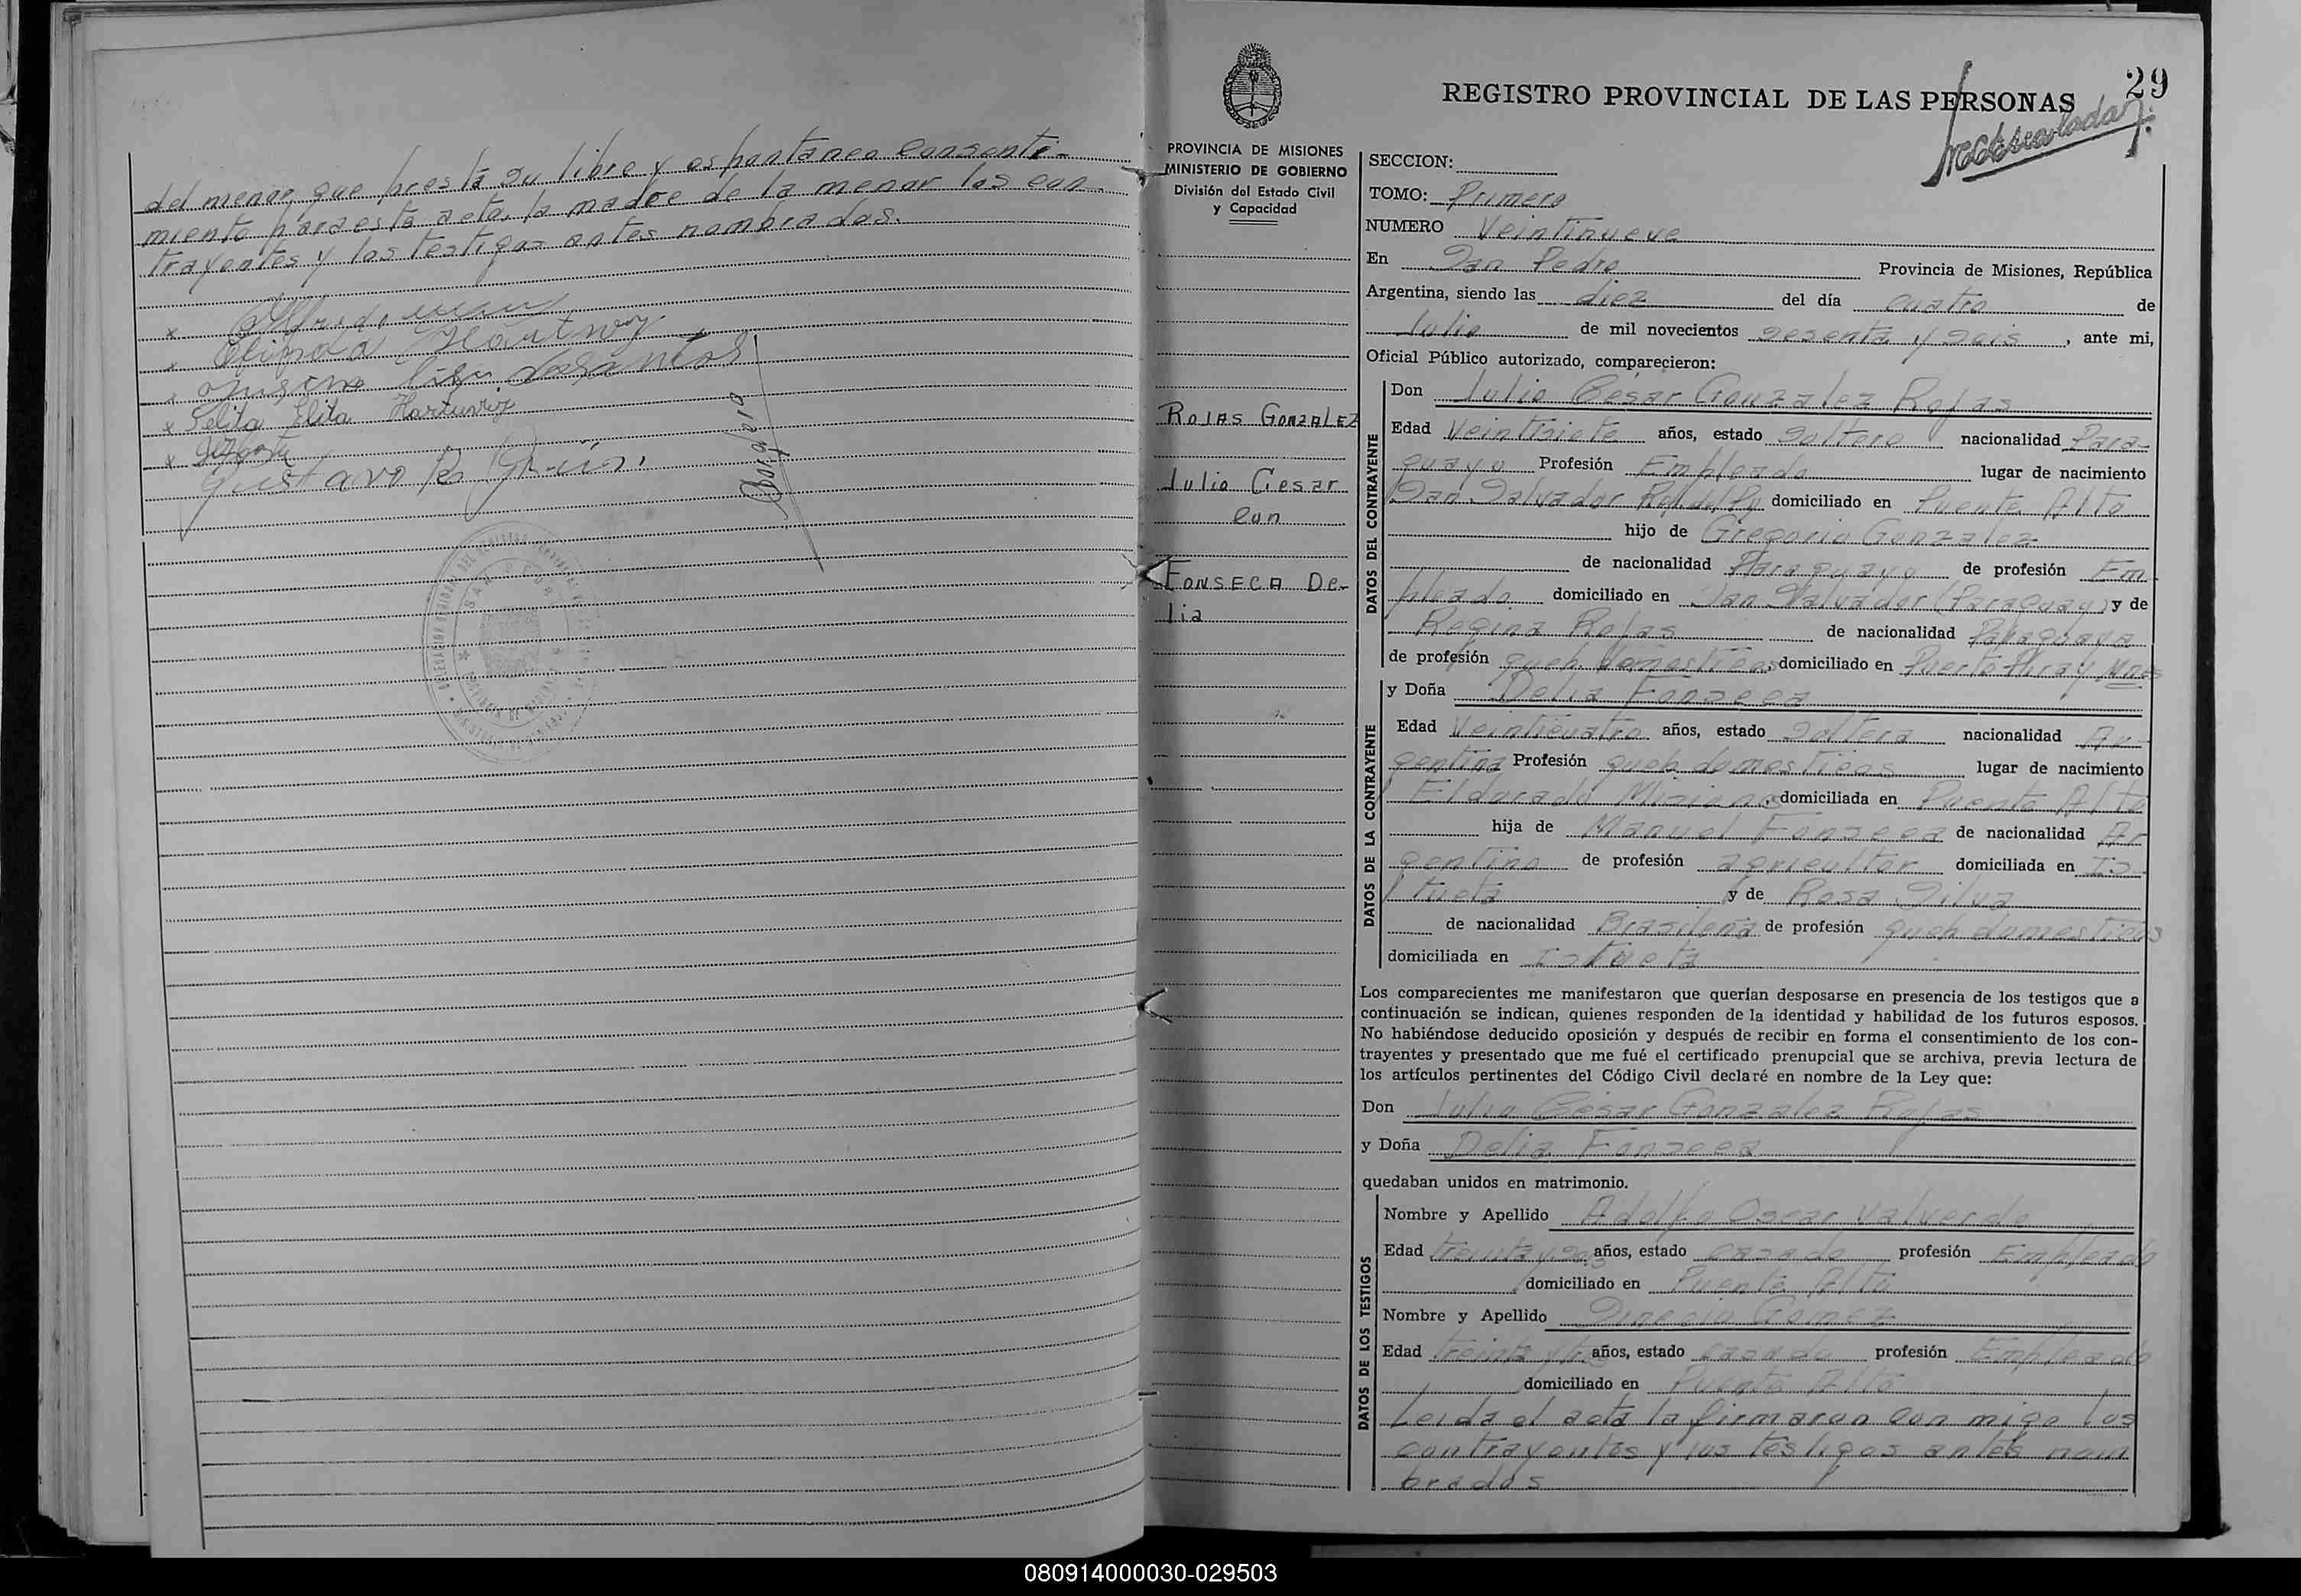 del menor, que presta su libre y espontaneo consenti-
miento para esta acto, la madre de la menor los con-
trayentes y los testigos antes nombrados.
Alfredo
Olinda Hartwig
dosantos
Selita Elita Hartwig
Gustavo
29
REGISTRO PROVINCIAL DE LAS PERSONAS
PROVINCIA DE MISIONES
MINISTERIO DE GOBIERNO
División del Estado Civil
y Capacidad
ROJAS GONZALEZ
Julio Cesar
con
FONSECA De-
lia
SECCION:
TOMO: Primero
NUMERO Veintinueve
En San Pedro Provincia de Misiones, República
Argentina, siendo las diez del día cuatro de
Julio de mil novecientos sesenta y seis, ante mi,
Oficial Público autorizado, comparecieron:
DATOS DEL CONTRAYENTE
Don Julio César Gonzalez Rojas
Edad Veintisiete años, estado soltero nacionalidad Para-
guayo Profesión Empleado lugar de nacimiento
San Salvador Rep. del Py domiciliado en Puente Alto
hijo de Gregorio Gonzalez
de nacionalidad Paraguayo de profesión Em
pleado domiciliado en San Salvador (Paraguay) y de
Regina Rojas de nacionalidad Paraguaya
de profesión queh. domesticos, domiciliado en Puerto Piray Mnes
DATOS DE LA CONTRAYENTE
y Doña Delia Fonseca
Edad Veinticuatro años, estado soltera nacionalidad Ar-
gentina Profesión queh domesticos lugar de nacimiento
Eldorado Misiones, domiciliada en Puente Alto
hija de Manuel Fonseca de nacionalidad Ar
gentino de profesión agricultor domiciliada en Is
tueta y de Rosa Silva
de nacionalidad Brasileña de profesión queh domesticos
domiciliada en Istueta
Los comparecientes me manifestaron que querían desposarse en presencia de los testigos que a
continuación se indican, quienes responden de la identidad y habilidad de los futuros esposos.
No habiéndose deducido oposición y después de recibir en forma el consentimiento de los con-
trayentes y presentado que me fué el certificado prenupcial que se archiva, previa lectura de
los artículos pertinentes del Código Civil declaré en nombre de la Ley que:
Don Julio César Gonzalez Rojas
y Doña Delia Fonseca
quedaban unidos en matrimonio.
DATOS DE LOS TESTIGOS
Nombre y Apellido Adolfo Oscar Valverde
Edad treinta y seis años, estado casado profesión Empleado
domiciliado en Puente Alto
Nombre y Apellido Gomez
Edad treinta y años, estado casado profesión Empleado
domiciliado en Puente Alto
Leida el acta la firmaron con migo los
contrayentes y los testigos antes nom
brados
080914000030-029503